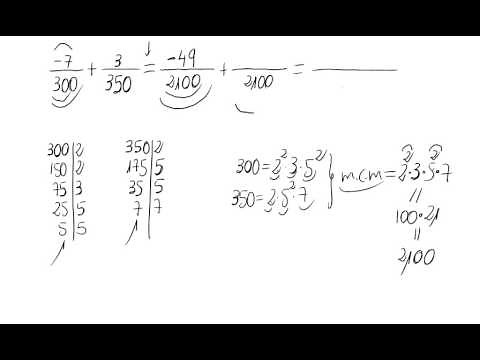 -7/300 + 3/350 = -49/2100 + /2100 =
300|2
150|2
75|3
25|5
5|5
350|2
175|5
35|5
7|7
300=2²·3·5²
350=2·5²·7
m.c.m=2²·3·5²·7
=
100·21
=
2100